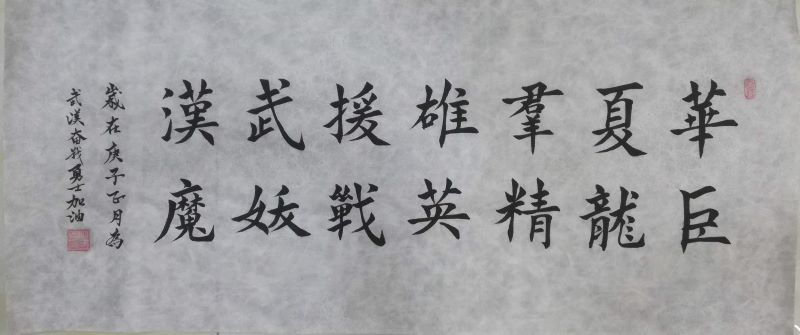 華夏羣雄援武漢
巨龍精英戰妖魔
歲在庚子正月為
武漢奋战勇士加油